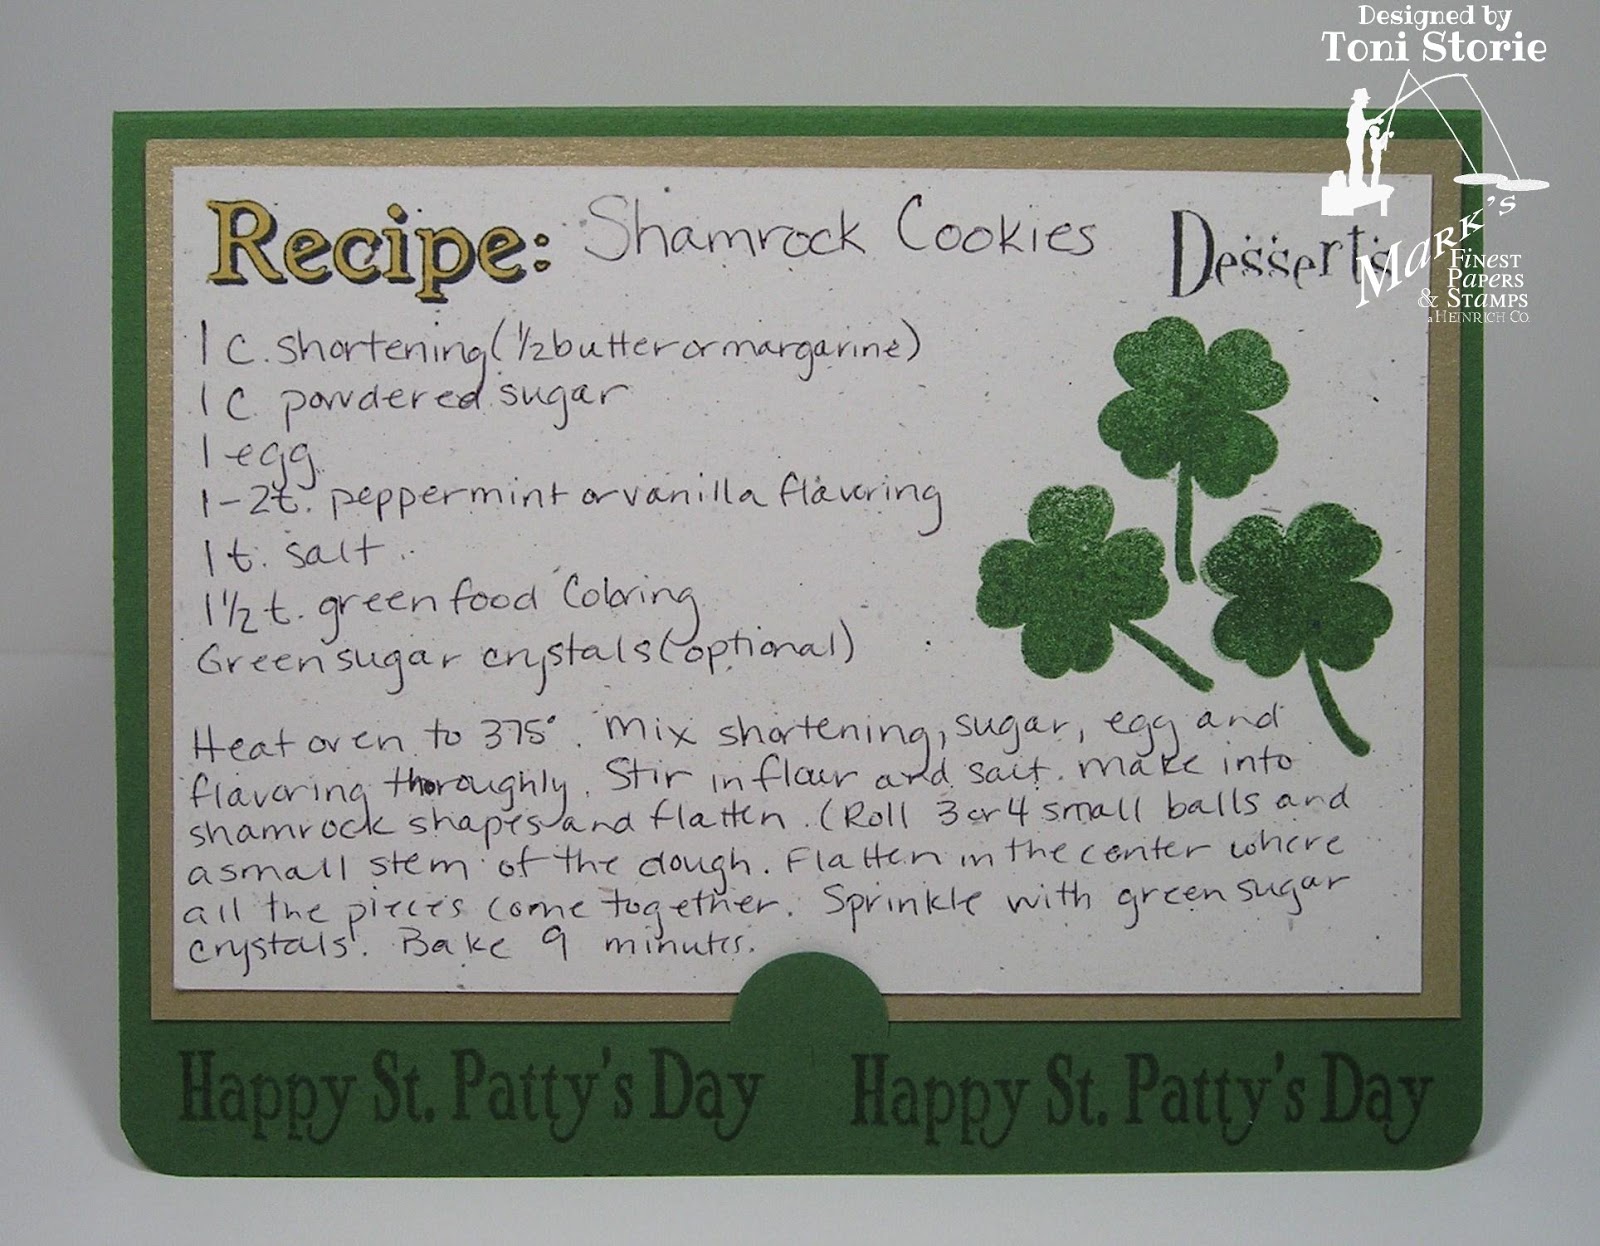 Designed by
Toni Storie
Mark's
Finest
Papers
& Stamps
a Heinrich Co.
Recipe: Shamrock Cookies
Desserts
1 c. shortening (1/2 butter or margarine)
1 c. powdered sugar
1 egg
1-2 t. peppermint or vanilla flavoring
1 t. salt
1 1/2 t. green food Coloring
Green sugar crystals (optional)
Heat oven to 375°. Mix shortening, sugar, egg and
flavoring thoroughly. Stir in flour and salt. Make into
shamrock shapes and flatten. (Roll 3 or 4 small balls and
a small stem of the dough. Flatten in the center where
all the pieces come together. Sprinkle with green sugar
crystals. Bake 9 minutes.
Happy St. Patty's Day Happy St. Patty's Day